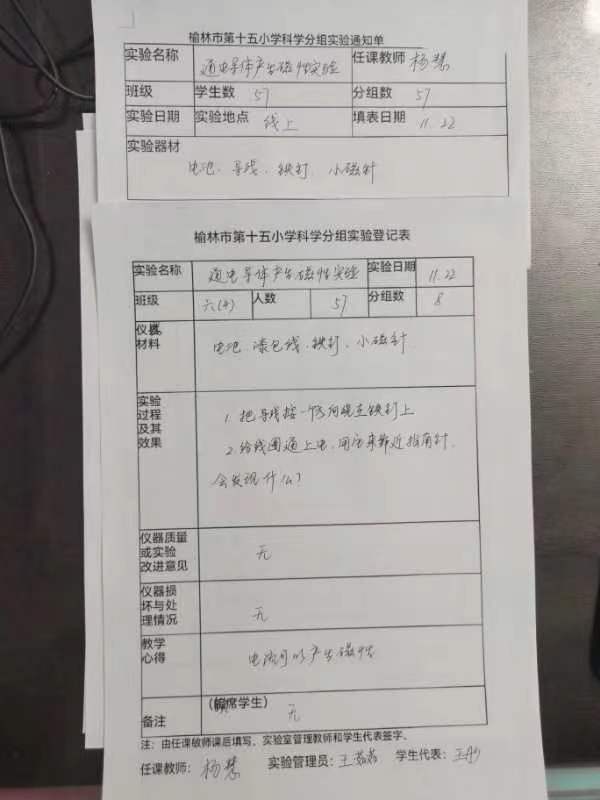 榆林市第十五小学科学分组实验通知单
实验名称 通电导体产生磁性实验 任课教师 杨慧
班级 学生数 57 分组数 57
实验日期 实验地点 线上 填表日期 11.22
实验器材
电池、导线、铁钉、小磁针
榆林市第十五小学科学分组实验登记表
实验名称 通电导体产生磁性实验 实验日期 11.22
班级 六(4) 人数 57 分组数 8
仪器,
材料
电池、漆包线、铁钉、小磁针
实验
过程
及其
效果
1. 把导线按一个方向绕在铁钉上
2. 给线圈通上电,用它来靠近指南针,
会发现什么?
仪器质量
或实验
改进意见
无
仪器损
坏与处
理情况
无
教学
心得
电流可以产生磁性
备注
(缺席学生)
无
注:由任课教师课后填写,实验室管理教师和学生代表签字。
任课教师: 杨慧 实验管理员: 王 学生代表: 王